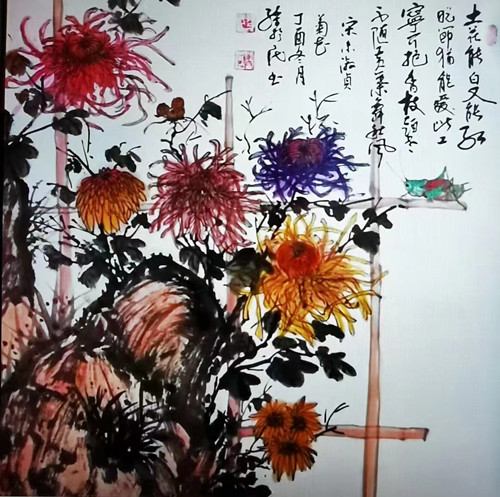 土花能白又能红
晚節猶能爱此工
寧可抱香枝頭老
不随黄葉舞秋風
宋朱淑貞
菊花
丁酉冬月